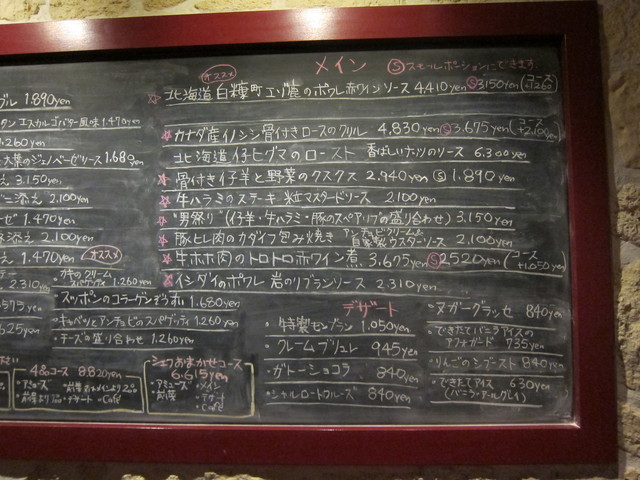 メイン
Ⓢスモールポーションにできます
オススメ
☆ 北海道白糠町エゾ鹿のポワレ 赤ワインソース 4,410yen Ⓢ3,150yen (コース +1,260)
☆ カナダ産イノシシ骨付きロースのグリル 4,830yen Ⓢ3,675yen (コース +2,100yen)
北海道仔ヒグマのロースト 香ばしいナッツのソース 6,300yen
☆ 骨付き仔羊と野菜のクスクス 2,940yen Ⓢ1,890yen
☆ 牛ハラミのステーキ 粒マスタードソース 2,100yen
☆ "男祭り"(仔羊・牛ハラミ・豚のスペアリブの盛り合わせ) 3,150yen
☆ 豚ヒレ肉のカダイフ包み焼き アンチョビクリームと自家製ウスターソース 2,100yen
☆ 牛ホホ肉のトロトロ赤ワイン煮 3,675yen Ⓢ2520yen (コース +1,050yen)
☆ イシダイのポワレ 岩のりブランソース 2,310yen
デザート
・特製モンブラン 1,050yen
・クレームブリュレ 945yen
・ガトーショコラ 840yen
・シャルロートフルーズ 840yen
・ヌガーグラッセ 840yen
・できたてバニラアイスのアフォガード 735yen
・りんごのシブースト 840yen
・できたてアイス 630yen
(バニラ・アールグレイ)
ブル 1.890yen
タン エスカルゴバター風味 1.470yen
1.260yen
大葉のジェノベーゼソース 1.680yen
え 3.150yen
ニ添え 2.100yen
ーゼ 1.470yen
ネ添え 2.100yen
え 1.470yen
オススメ
テー 2.310yen
・カキのクリームスパゲッティ 1.260yen
・スッポンのコラーゲンぞうすい 1.680yen
・キャベツとアンチョビのスパゲッティ 1.260yen
・チーズの盛り合わせ 1.260yen
625yen
4品コース 8.820yen
・アミューズ
・デザート
・Café
シェフおまかせコース
6.615yen
・アミューズ
・前菜
・メイン
・デザート
・Café